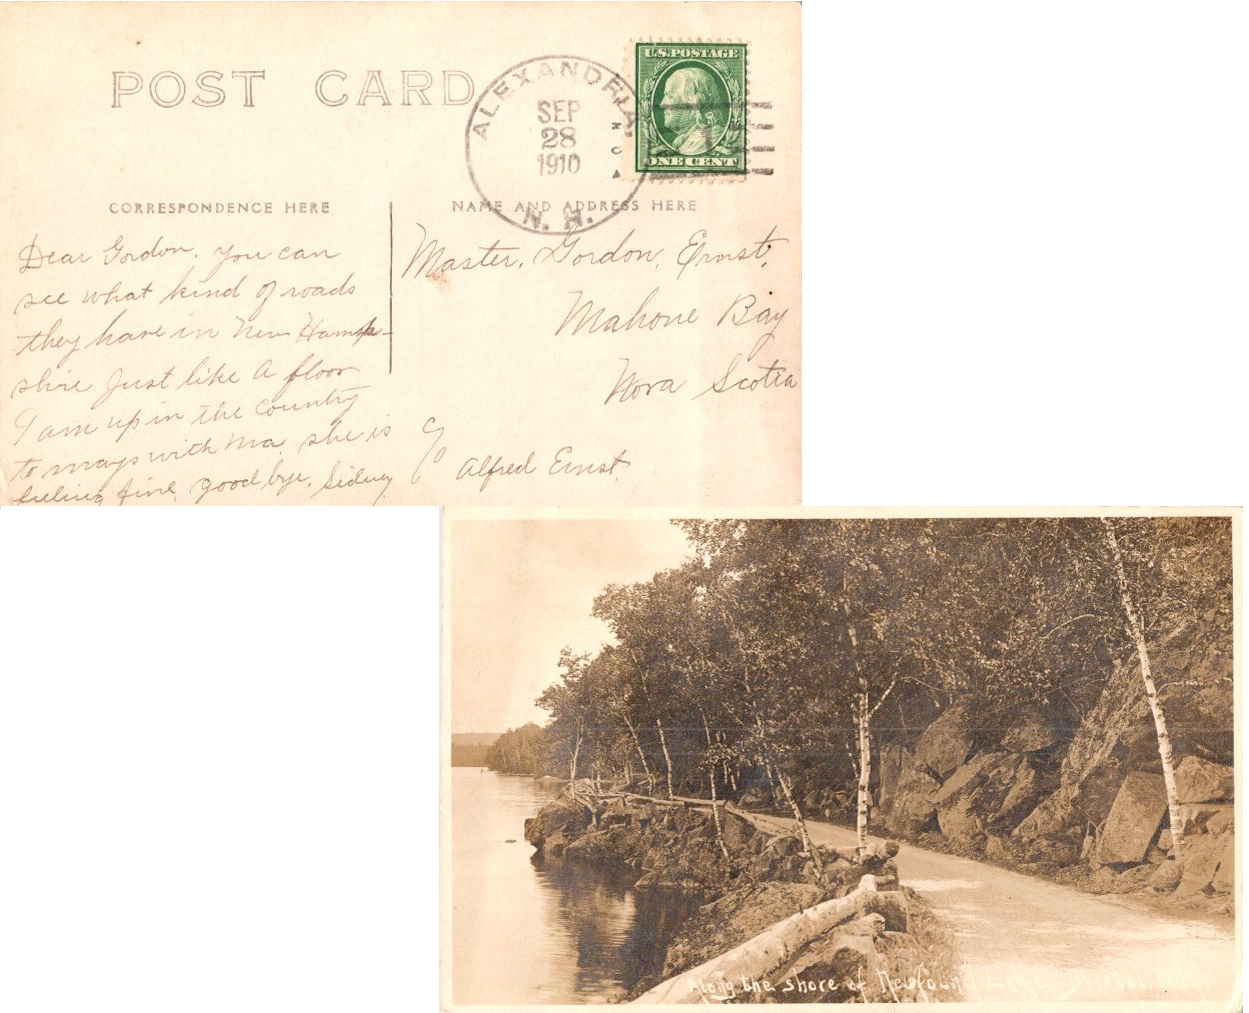 POST CARD
ALEXANDRIA.
SEP
28
1910
N. H.
U.S. POSTAGE
ONE CENT
CORRESPONDENCE HERE
NAME AND ADDRESS HERE
Dear Gordon. you can
see what kind of roads
they have in New Hamp-
shire Just like a floor
I am up in the country
to ways with Ma, she is
feeling fine, good bye, Sidney
Master. Gordon, Ernst,
Mahone Bay
Nova Scotia
c/o
Alfred Ernst,
Along the shore of Newfound Lake